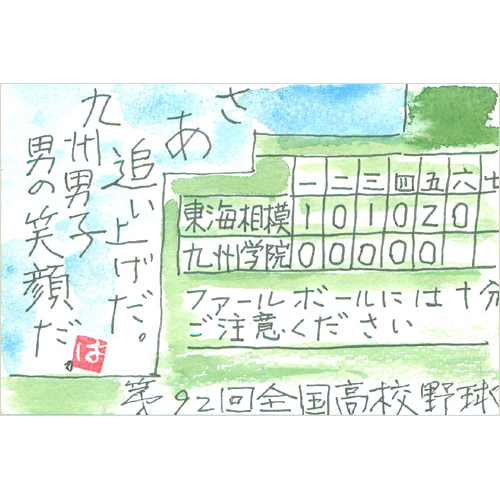 さあ
追い上げだ。
九州男子
男の笑顔だ。
は
一 二 三 四 五 六 七
東海相模 1 0 1 0 2 0
九州学院 0 0 0 0 0
ファールボールには十分
ご注意ください
第92回全国高校野球